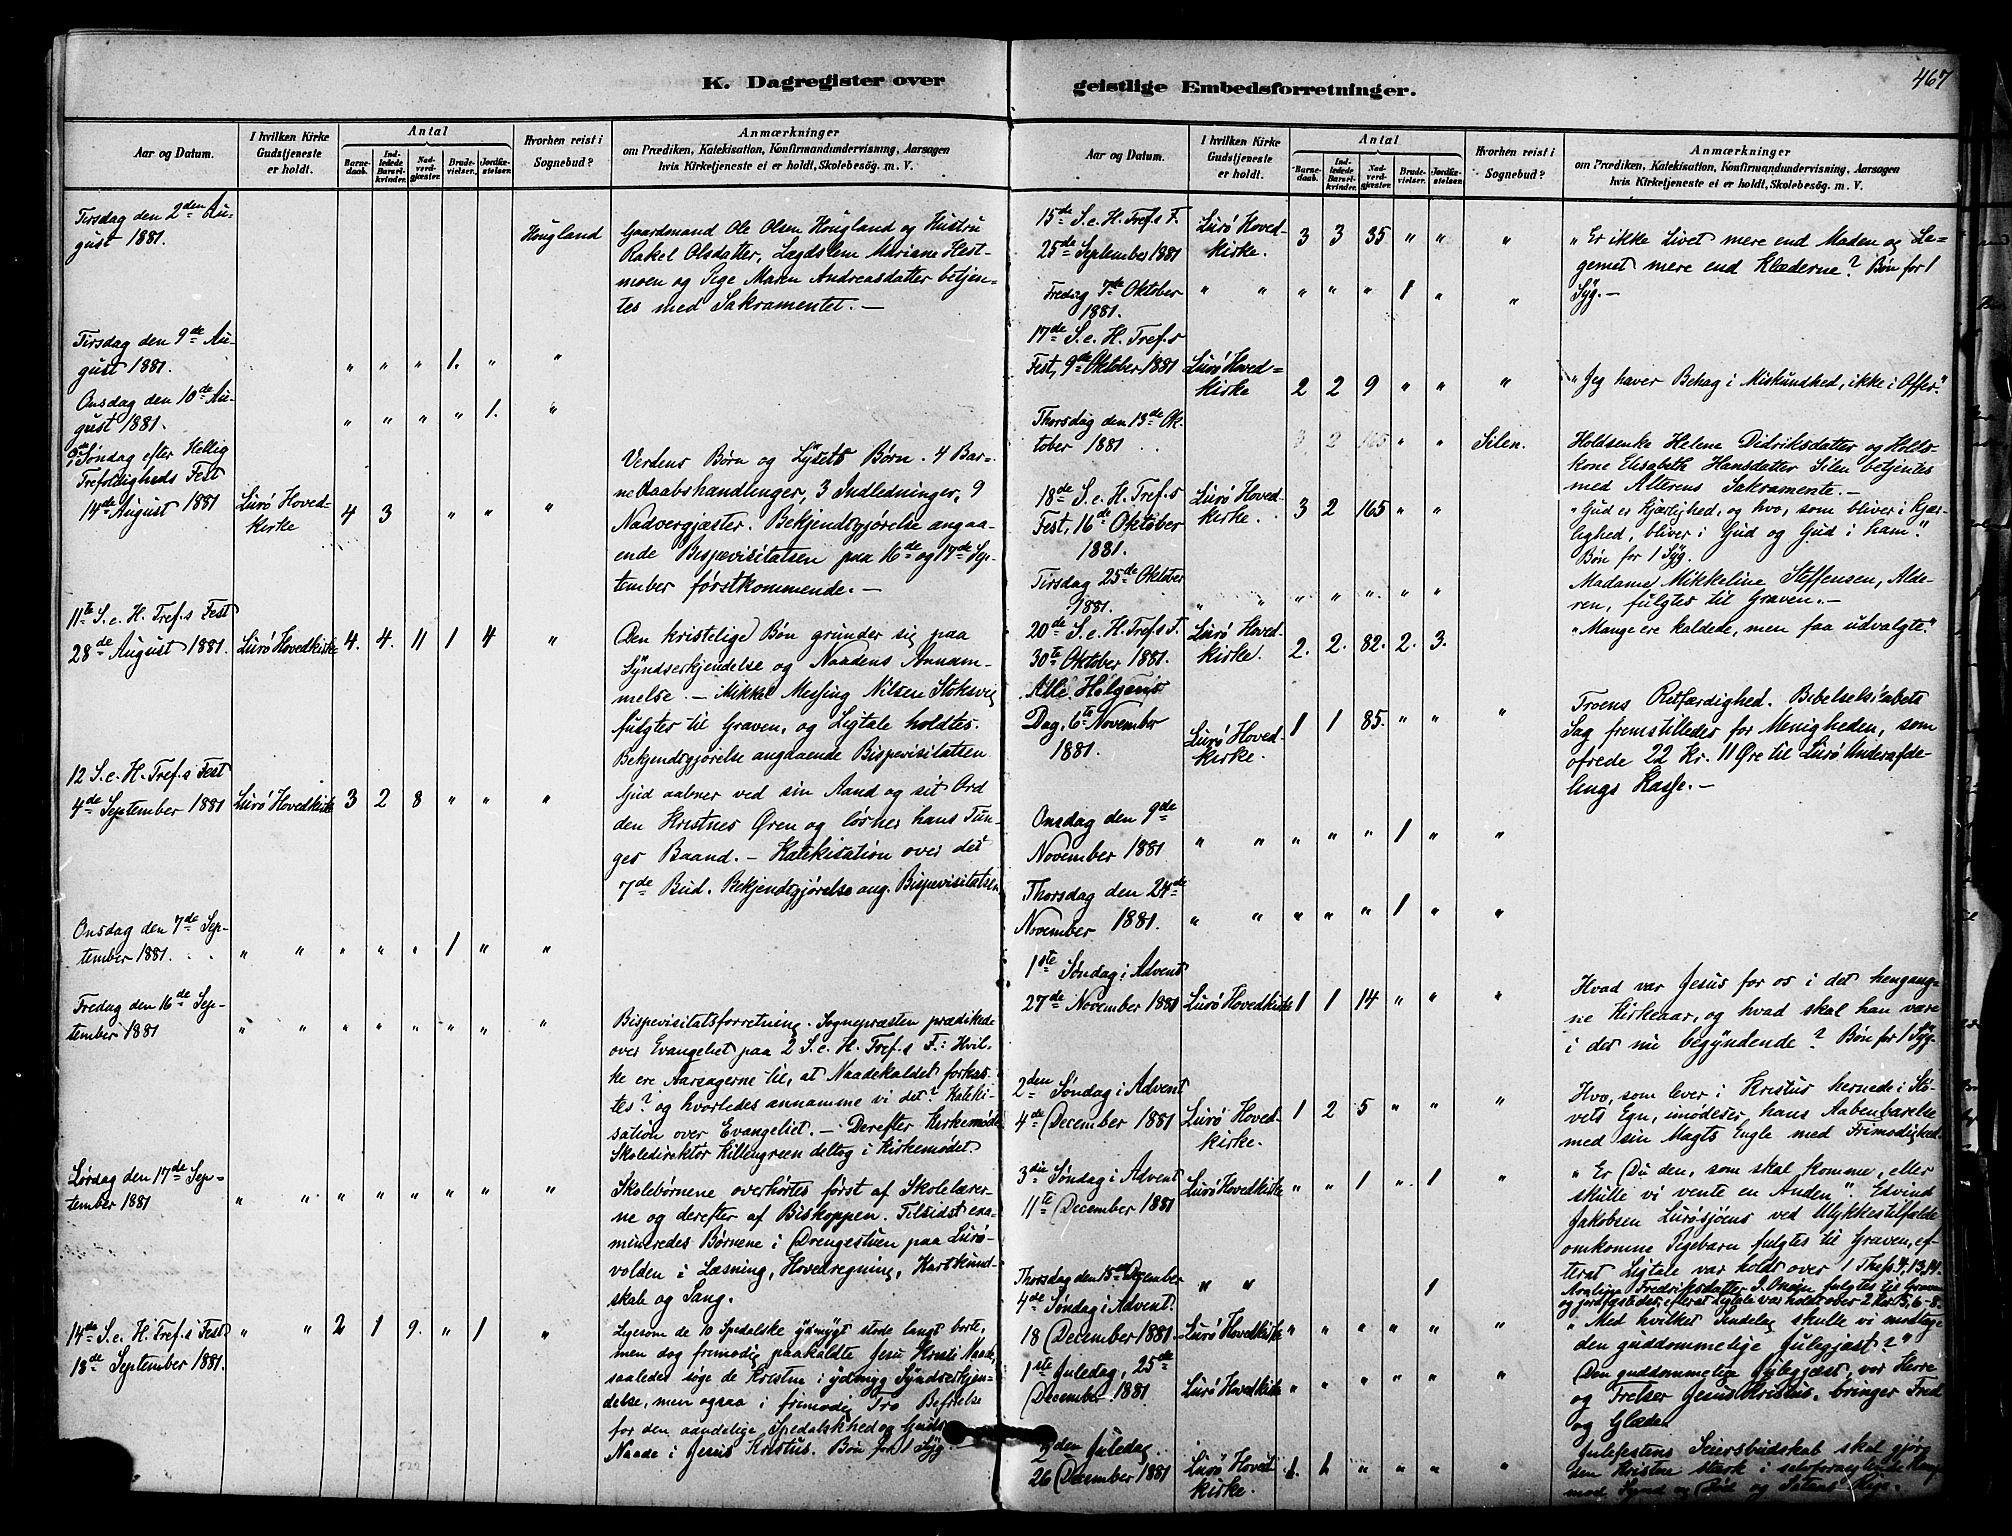 K. Dagregister over
Aar og Datum.
I hvilken Kirke Gudstjeneste er holdt.
Antal
Barnedaab.
Indledede Barselkvinder.
Nadverdgjæster.
Brudevielser.
Jordfæstelser.
Hvorhen reist i Sognebud?
Anmærkninger
om Prædiken, Katekisation, Konfirmandundervisning, Aarsagen
hvis Kirketjeneste ei er holdt, Skolebesøg. m. V.
Tirsdag den 2den Au-
gust 1881.
Hougland
Gaardmand Ole Olsen Hougland og Hustru
Rakel Olsdatter, Lægdslem Mariane Hest-
moen og Pige Maren Andreasdatter betjen-
tes med Sakramentet. —
Tirsdag den 9de Au-
gust 1881. " " " 1. " "
Onsdag den 10de Au-
gust 1881. " " " " 1. "
Søndag efter Hellig
Trefoldigheds Fest
14de August 1881 Lurø Hoved-
kirke 4 3 " " "
Verdens Børn og Lysets Børn. 4 Bar-
nedaabshandlinger, 3 Indledninger, 9
Nadvergjæster. Bekjendtgjørelse angaa-
ende Bispevisitatsen paa 16de og 17de Sep-
tember førstkommende. —
11te S. e. H. Tref.s Fest
28de August 1881. Lurø Hovedkirke 4. 4. 11 1 4 "
Den kristelige Bøn grunder sig paa
Syndserkjendelse og Naadens Annam-
melse. — Mikkel Messing Nilsen Stoksvig
fulgtes til Graven, og Ligtale holdtes.
Bekjendtgjørelse angaaende Bispevisitatsen
12 S. e. H. Tref.s Fest
4de September 1881 Lurø Hovedkirke 3 2 8 " " "
Gud aabner ved sin Aand og sit Ord
den Kristnes Øren og løsner hans Tun-
ges Baand. — Katekisation over det
7de Bud. Bekjendtgjørelse ang. Bispevisitatsen
Onsdag den 7de Sep-
tember 1881. " " " " " 1 " "
Fredag den 16de Sep-
tember 1881 " " " " " " " "
Bispevisitatsforretning. Sognepræsten prædikede
over Evangeliet paa 2 S. e. H. Tref.s F.: Hvil-
ke ere Aarsagerne til, at Naadekaldet forkas-
tes? og hvorledes annamme vi det? Kateki-
sation over Evangeliet. — Derefter Kirkemøde.
Skoledirektør Killengreen deltog i Kirkemødet.
Lørdag den 17de Sep-
tember 1881 " " " " " " " "
Skolebørnene overhørtes først af Skolelærer-
ne og derefter af Biskoppen. Tilsidst exa-
mineredes Børnene i Drengestuen paa Lurø-
volden i Læsning, Hovedregning, Kartkund-
skab og Sang.
14de S. e. H. Tref.s Fest
18de September 1881. " " 2 1 9. " 1 "
Ligesom de 10 Spedalske ydmygt stode langt borte,
men dog frimodig paakaldte Jesu Kristi Naade,
saaledes søge de Kristne i ydmyg Syndserkjen-
delse, men ogsaa i frimodig Tro Befrielse
for den aandelige Spedalskhed og Guds
Naade i Jesus Kristus. Bøn for 1 Syg.
geistlige Embedsforretninger.
467
Aar og Datum.
I hvilken Kirke Gudstjeneste er holdt.
Antal
Barnedaab.
Indledede Barselkvinder.
Nadverdgjæster.
Brudevielser.
Jordfæstelser.
Hvorhen reist i Sognebud?
Anmærkninger
om Prædiken, Katekisation, Konfirmandundervisning, Aarsagen
hvis Kirketjeneste ei er holdt, Skolebesøg. m. V.
15de S. e. H. Tref.s F.
25de September 1881 Lurø Hoved-
kirke. 3 3 35 " " "
"Er ikke Livet mere end Maden og Le-
gemet mere end Klæderne? Bøn for 1
Syg. —
Fredag 7de Oktober
1881. " " " " " 1 " "
17de S. e. H. Tref.s
Fest, 9de Oktober 1881 Lurø Hoved-
kirke 2 2 9 " " "
"Jeg haver Behag i Miskundhed, ikke i Offer."
Thorsdag den 13de Ok-
tober 1881 3 2 165 " " Silen.
Holdsenke Helene Didriksdatter og Holds-
kone Elisabeth Hansdatter Silen betjentes
med Alterens Sakramente. —
18de S. e. H. Tref.s
Fest, 16de Oktober
1881. Lurø Hoved-
kirke. 3 2 165 " "
"Gud er Kjærlighed, og hvo, som bliver i Kjær-
lighed, bliver i Gud og Gud i ham".
Bøn for 1 Syg.
Tirsdag 25de Oktober
1881. " " " " " " "
Madame Mikkeline Steffensen, Alde-
ren, fulgtes til Graven. —
20de S. e. H. Tref.s F.
30te Oktober 1881. Lurø Hoved-
kirke. 2. 2. 82. 2. 3.
"Mange ere kaldede, men faa udvalgte."
Alle Helgens
Dag, 6te November
1881. Lurø Hoved-
kirke. 1 1 85. " " "
Troens Retfærdighed. Bibelselskabets
Sag fremstilledes for Menigheden, som
ofrede 22 Kr. 11 Øre til Lurø Underafde-
lings Kasse. —
Onsdag den 9de
November 1881 " " " " " 1 " "
Thorsdag den 24de
November 1881. " " " " " 1 " "
1ste Søndag i Advent
27de November 1881 Lurø Hovedkirke 1 1 14 " " "
Hvad var Jesus for os i det hengang-
ne Kirkeaar, og hvad skal han være
i det nu begyndende? Bøn for 1 Syg.
2den Søndag i Advent
4de December 1881 Lurø Hoved-
kirke. 1 2 5 " " "
Hvo, som lever i Kristus hernede i Stø-
vets Egn, imødeser hans Aabenbarelse
med sin Magts Engle med Frimodighed.
3die Søndag i Advent
11te December 1881 Lurø Hovedkirke " " 1 " 1 "
"Er Du den, som skal komme, eller
skulle vi vente en Anden". Edvind
Jakobsen Lurøsjøens ved Ulykkestilfælde
omkomne Pigebarn fulgtes til Graven, ef-
terat Ligtale var holdt over 1 Thess. 4, 13, 14.
Thorsdag den 15de December " " 1
Fredriksdatter fulgtes til Graven
og jordfæstedes, efterat Ligtale var holdt over 2 Kor. 5, 6-8.
4de Søndag i Advent.
18 December 1881. Lurø Hovedkirke " " " " " "
"Med hvilket Sindelag skulle vi modtage
den guddommelige Julegjæst?"
1ste Juledag, 25de
December 1881. Lurø Hovedkirke " " " " " "
Den guddommelige Julegjæst, vor Herre
og Frelser Jesus Kristus, bringer Fred
og Glæde.
2den Juledag
26 December 1881 Lurø Hoved-
kirke. 1. 1 " " " "
Julefestens Seiersbudskab skal gjøre
den Kristne stærk i
mod Synd og Død og Satans Rige.